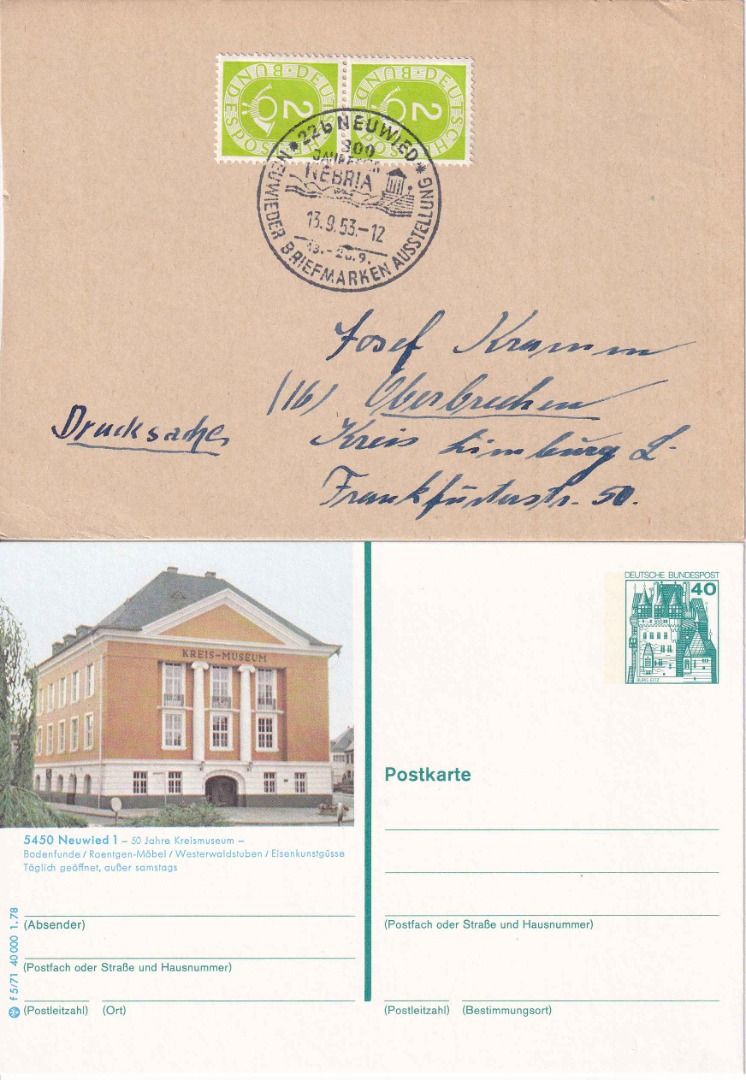 DEUTSCHE BUNDESPOST
2
DEUTSCHE BUNDESPOST
2
*22b NEUWIED*
300
JAHRE
NEBRIA
13.9.53.-12
13.-20.9.
NEUWIEDER BRIEFMARKEN AUSSTELLUNG
Josef Kramm
(16) Oberbrechen
Drucksache
Kreis Limburg L.
Frankfurterstr. 50.
KREIS-MUSEUM
DEUTSCHE BUNDESPOST
40
BURG ELTZ
Postkarte
5450 Neuwied 1 – 50 Jahre Kreismuseum –
Bodenfunde / Roentgen-Möbel / Westerwaldstuben / Eisenkunstgüsse
Täglich geöffnet, außer samstags
(Absender)
(Postfach oder Straße und Hausnummer)
(Postleitzahl) (Ort)
(Postfach oder Straße und Hausnummer)
(Postleitzahl) (Bestimmungsort)
f 5/71 40 000 1.78